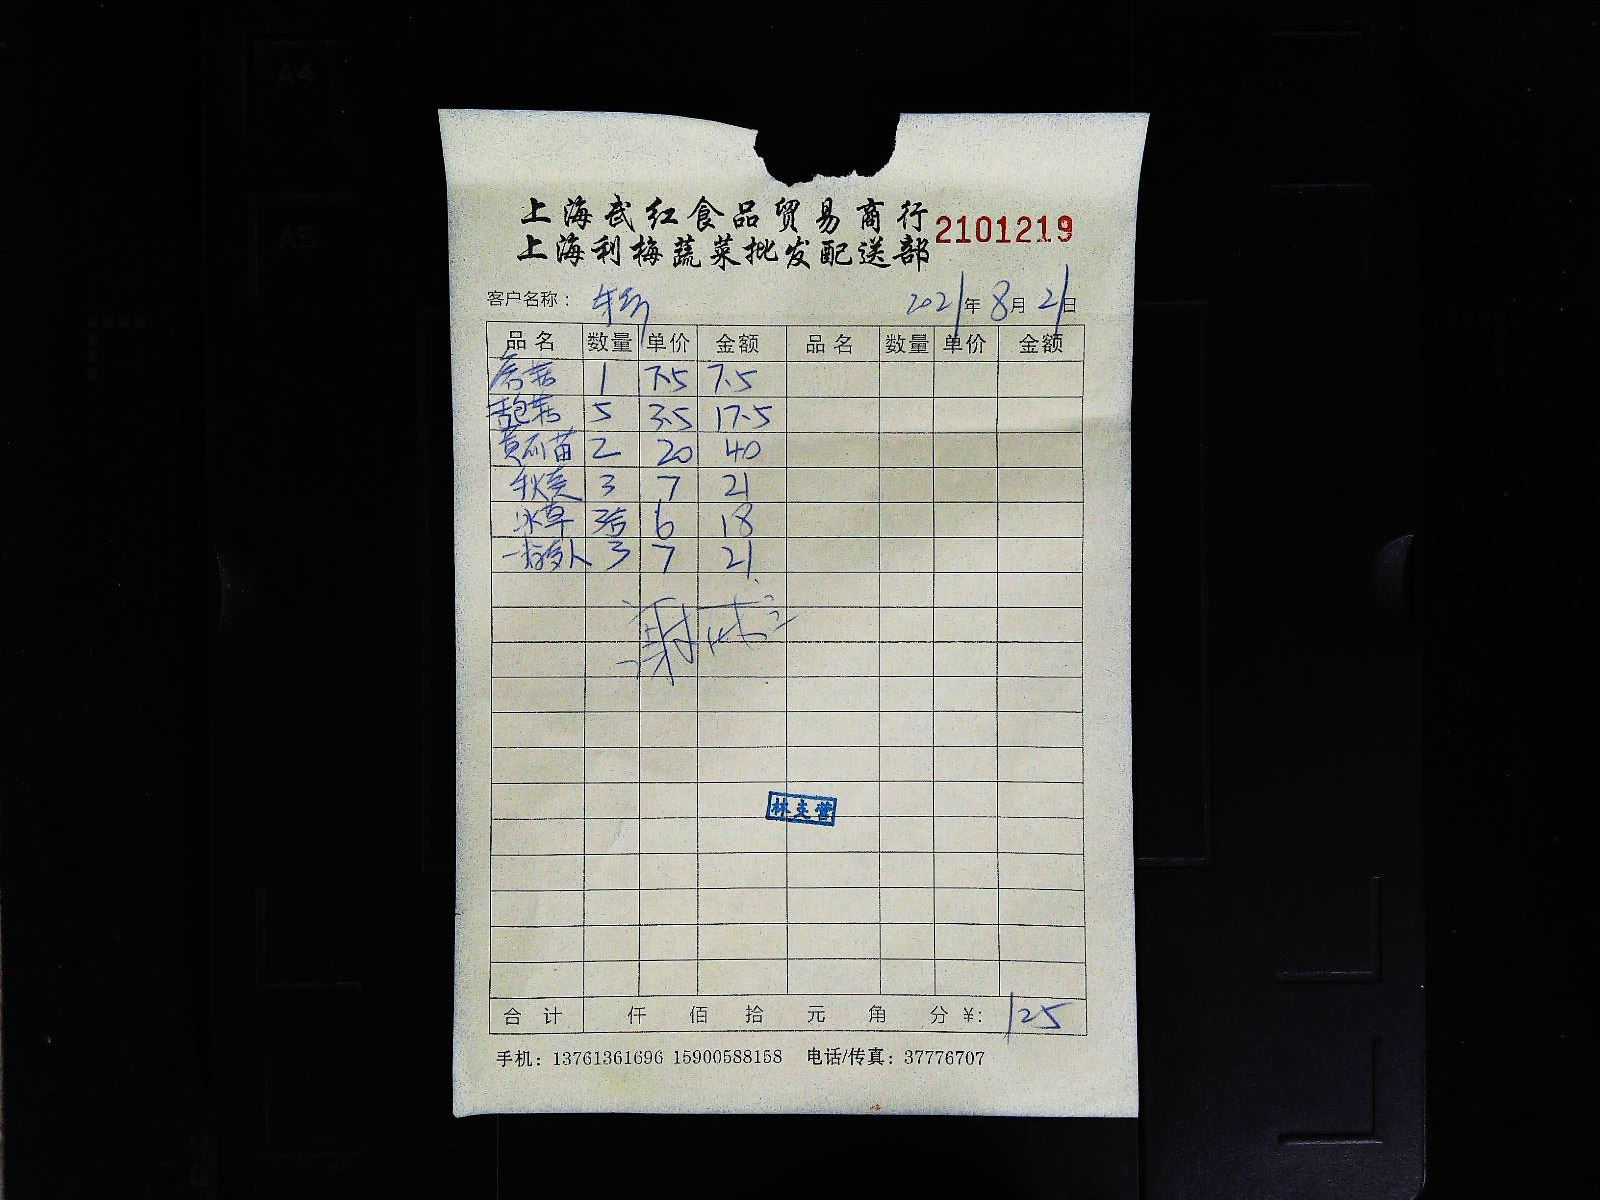 上海武红食品贸易商行
2101219
上海利梅蔬菜批发配送部
客户名称： 2021年8月21日
品名 数量 单价 金额 品名 数量 单价 金额
1 7.5 7.5
5 3.5 17.5
黄瓜苗 2 20 40
秋葵 3 7 21
冰草 3 6 18
3 7 21
林夫营
合计 仟 佰 拾 元 角 分 ¥: 125
手机：13761361696 15900588158 电话/传真：37776707
A4
A5